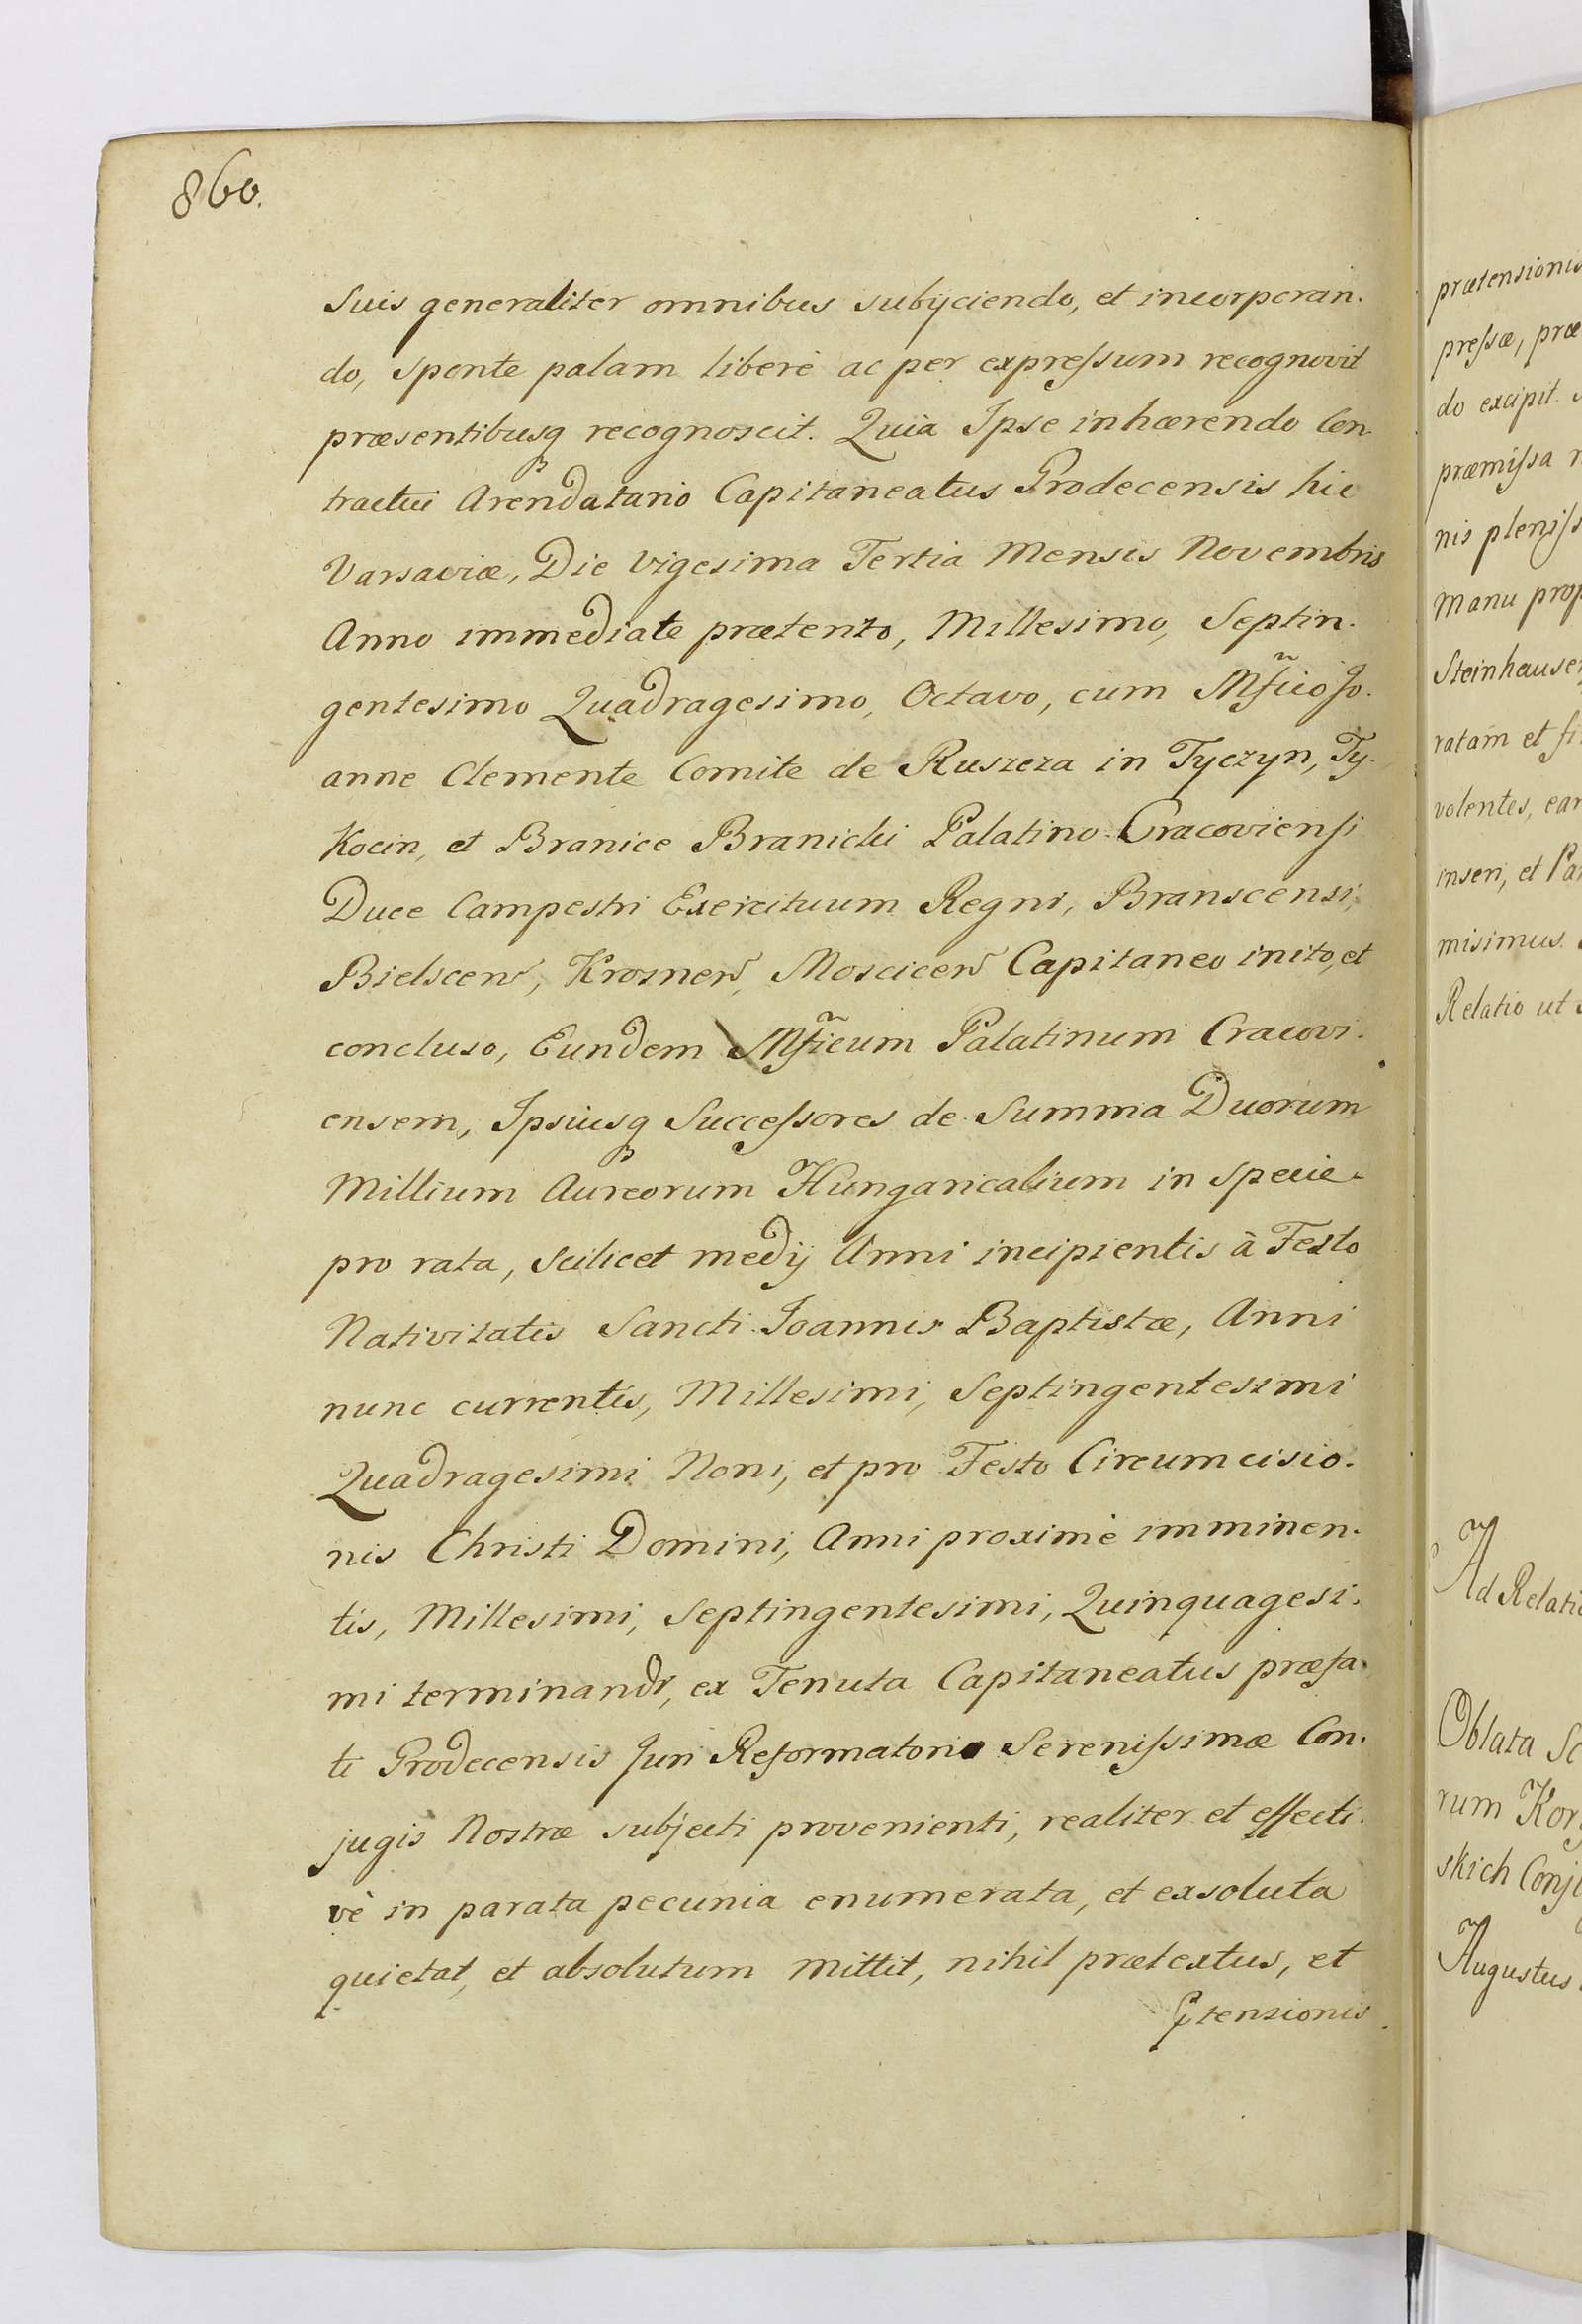 860.
Suis generaliter omnibus subijciendo, et incorporan.
do, sponte palam liberè ac per expreſsum recognovit
præsentibusq recognoscit. Quia Ipse inhærendo Con.
tractui Arendatario Capitaneatus Grodecensis hic
Varsaviæ, Die Vigesima Tertia Mensis Novembris
Anno immediate prætento, Millesimo, Septin.
gentesimo Quadragesimo, Octavo, cum Mſico Jo.
anne Clemente Comite de Ruszcza in Tyczyn, Ty.
kocin, et Branice Branicki Palatino Cracovienſi
Duce Campestri Exercituum Regni, Branscensi,
Bielscen, Krosnen, Moscicen Capitaneo inito, et
concluso, Eundem Mſicum Palatinum Cracovi.
ensem, Ipsiusq Succeſsores de Summa Duorum
Millium Aureorum Hungaricalium in specie
pro rata, scilicet medij Anni incipientis à Festo
Nativitatis Sancti Joannis Baptistæ, Anni
nunc currentis, Millesimi, Septingentesimi
Quadragesimi Noni, et pro Festo Circumcisio.
nis Christi Domini, Anni proximè imminen.
tis, Millesimi, Septingentesimi, Quinquagesi.
mi terminandi, ex Tenuta Capitaneatus præfa.
ti Grodecensis Juri Reformatorio Sereniſsimæ Con.
jugis Nostræ subjecti provenienti, realiter et effecti.
vè in parata pecunia enumerata, et exsoluta
quietat, et absolutum mittit, nihil prætextus, et
ptensionis
prætensionis
preſsæ, præ
do excipit.
præmiſsa
nis pleniſs
Manu prop
Steinhausen
ratam et fi
volentes, ean
inseri, et Pa
misimus.
Relatio ut
Ad Relatio
Oblata
rum Kor
skich Conj
Augustus